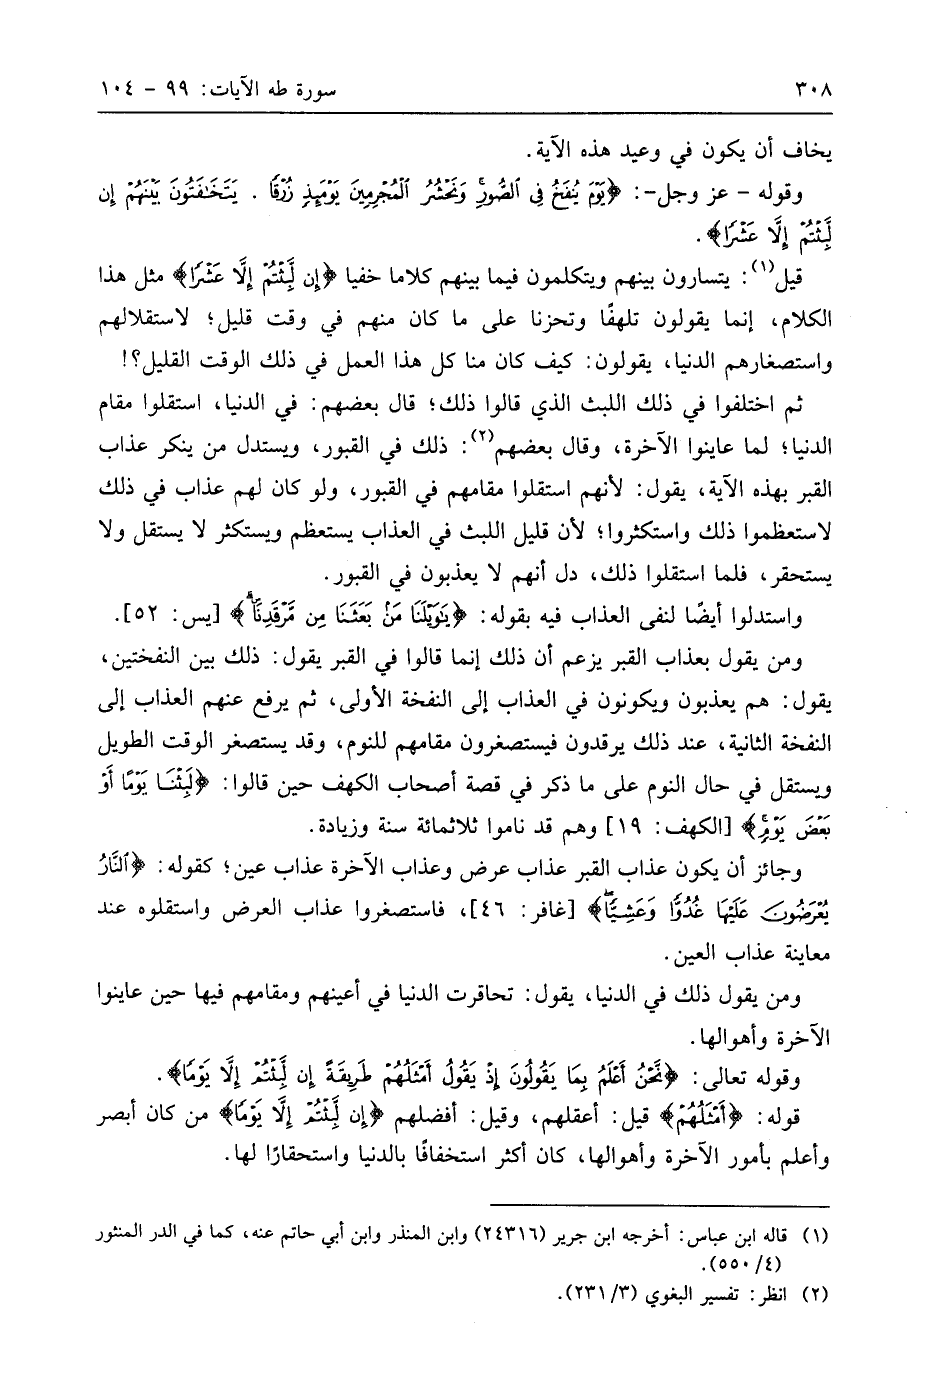 ٣٠٨ سورة طه الآيات: ٩٩ - ١٠٤
يخاف أن يكون في وعيد هذه الآية.
وقوله - عز وجل-: ﴿يَوْمَ يُنفَخُ فِي ٱلصُّورِۚ وَنَحْشُرُ ٱلْمُجْرِمِينَ يَوْمَئِذٍ زُرْقًا . يَتَخَٰفَتُونَ بَيْنَهُمْ إِن
لَّبِثْتُمْ إِلَّا عَشْرًا﴾.
قيل(١): يتسارون بينهم ويتكلمون فيما بينهم كلاما خفيا ﴿إِن لَّبِثْتُمْ إِلَّا عَشْرًا﴾ مثل هذا
الكلام، إنما يقولون تلهفًا وتحزنا على ما كان منهم في وقت قليل؛ لاستقلالهم
واستصغارهم الدنيا، يقولون: كيف كان منا كل هذا العمل في ذلك الوقت القليل؟!
ثم اختلفوا في ذلك اللبث الذي قالوا ذلك؛ قال بعضهم: في الدنيا، استقلوا مقام
الدنيا؛ لما عاينوا الآخرة، وقال بعضهم(٢): ذلك في القبور، ويستدل من ينكر عذاب
القبر بهذه الآية، يقول: لأنهم استقلوا مقامهم في القبور، ولو كان لهم عذاب في ذلك
لاستعظموا ذلك واستكثروا؛ لأن قليل اللبث في العذاب يستعظم ويستكثر لا يستقل ولا
يستحقر، فلما استقلوا ذلك، دل أنهم لا يعذبون في القبور.
واستدلوا أيضًا لنفى العذاب فيه بقوله: ﴿يَٰوَيْلَنَا مَنۢ بَعَثَنَا مِن مَّرْقَدِنَاۗ﴾ [يس: ٥٢].
ومن يقول بعذاب القبر يزعم أن ذلك إنما قالوا في القبر يقول: ذلك بين النفختين،
يقول: هم يعذبون ويكونون في العذاب إلى النفخة الأولى، ثم يرفع عنهم العذاب إلى
النفخة الثانية، عند ذلك يرقدون فيستصغرون مقامهم للنوم، وقد يستصغر الوقت الطويل
ويستقل في حال النوم على ما ذكر في قصة أصحاب الكهف حين قالوا: ﴿لَبِثْنَا يَوْمًا أَوْ
بَعْضَ يَوْمٍۚ﴾ [الكهف: ١٩] وهم قد ناموا ثلاثمائة سنة وزيادة.
وجائز أن يكون عذاب القبر عذاب عرض وعذاب الآخرة عذاب عين؛ كقوله: ﴿ٱلنَّارُ
يُعْرَضُونَ عَلَيْهَا غُدُوًّا وَعَشِيًّاۖ﴾ [غافر: ٤٦]، فاستصغروا عذاب العرض واستقلوه عند
معاينة عذاب العين.
ومن يقول ذلك في الدنيا، يقول: تحاقرت الدنيا في أعينهم ومقامهم فيها حين عاينوا
الآخرة وأهوالها.
وقوله تعالى: ﴿نَّحْنُ أَعْلَمُ بِمَا يَقُولُونَ إِذْ يَقُولُ أَمْثَلُهُمْ طَرِيقَةً إِن لَّبِثْتُمْ إِلَّا يَوْمًا﴾.
قوله: ﴿أَمْثَلُهُمْ﴾ قيل: أعقلهم، وقيل: أفضلهم ﴿إِن لَّبِثْتُمْ إِلَّا يَوْمًا﴾ من كان أبصر
وأعلم بأمور الآخرة وأهوالها، كان أكثر استخفافًا بالدنيا واستحقارًا لها.
(١) قاله ابن عباس: أخرجه ابن جرير (٢٤٣١٦) وابن المنذر وابن أبي حاتم عنه، كما في الدر المنثور
(٤/ ٥٥٠).
(٢) انظر: تفسير البغوي (٣/ ٢٣١).